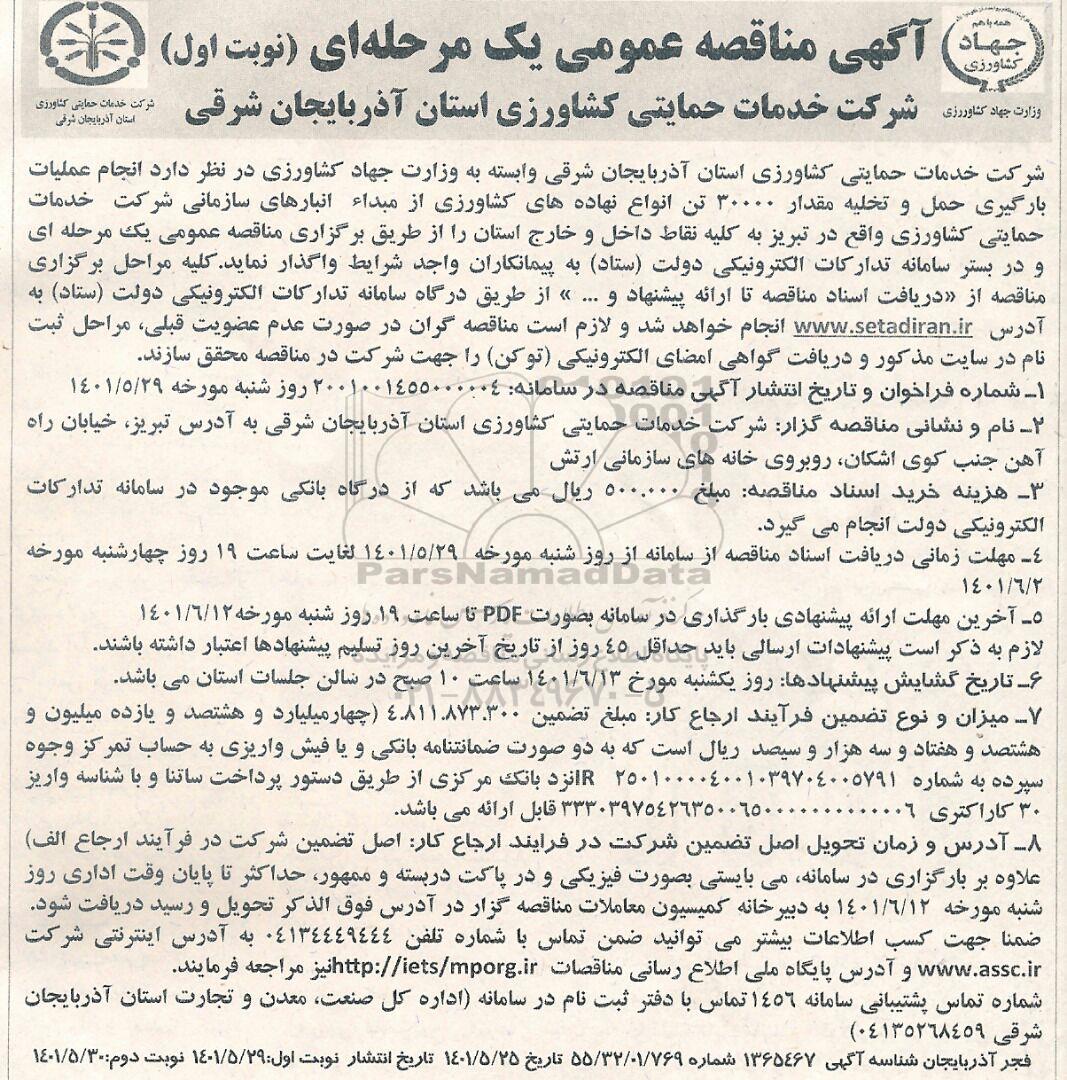 همه با هم
جهاد
کشاورزی
وزارت جهاد کشاورزی
آگهی مناقصه عمومی یک مرحله‌ای (نوبت اول)
شرکت خدمات حمایتی کشاورزی استان آذربایجان شرقی
شرکت خدمات حمایتی کشاورزی
استان آذربایجان شرقی
شرکت خدمات حمایتی کشاورزی استان آذربایجان شرقی وابسته به وزارت جهاد کشاورزی در نظر دارد انجام عملیات
بارگیری حمل و تخلیه مقدار ۳۰۰۰۰ تن انواع نهاده های کشاورزی از مبداء انبارهای سازمانی شرکت خدمات
حمایتی کشاورزی واقع در تبریز به کلیه نقاط داخل و خارج استان را از طریق برگزاری مناقصه عمومی یک مرحله ای
و در بستر سامانه تدارکات الکترونیکی دولت (ستاد) به پیمانکاران واجد شرایط واگذار نماید.کلیه مراحل برگزاری
مناقصه از «دریافت اسناد مناقصه تا ارائه پیشنهاد و ... » از طریق درگاه سامانه تدارکات الکترونیکی دولت (ستاد) به
آدرس www.setadiran.ir انجام خواهد شد و لازم است مناقصه گران در صورت عدم عضویت قبلی، مراحل ثبت
نام در سایت مذکور و دریافت گواهی امضای الکترونیکی (توکن) را جهت شرکت در مناقصه محقق سازند.
۱ـ شماره فراخوان و تاریخ انتشار آگهی مناقصه در سامانه: ۲۰۰۱۰۰۱۴۵۵۰۰۰۰۰۴ روز شنبه مورخه ۱۴۰۱/۵/۲۹
۲ـ نام و نشانی مناقصه گزار: شرکت خدمات حمایتی کشاورزی استان آذربایجان شرقی به آدرس تبریز، خیابان راه
آهن جنب کوی اشکان، روبروی خانه های سازمانی ارتش
۳ـ هزینه خرید اسناد مناقصه: مبلغ ۵۰۰.۰۰۰ ریال می باشد که از درگاه بانکی موجود در سامانه تدارکات
الکترونیکی دولت انجام می گیرد.
۴ـ مهلت زمانی دریافت اسناد مناقصه از سامانه از روز شنبه مورخه ۱۴۰۱/۵/۲۹ لغایت ساعت ۱۹ روز چهارشنبه مورخه
۱۴۰۱/۶/۲
ParsNamadData
۵ـ آخرین مهلت ارائه پیشنهادی بارگذاری در سامانه بصورت PDF تا ساعت ۱۹ روز شنبه مورخه۱۴۰۱/۶/۱۲
لازم به ذکر است پیشنهادات ارسالی باید حداقل ۴۵ روز از تاریخ آخرین روز تسلیم پیشنهادها اعتبار داشته باشند.
پایگاه اطلاع رسانی مناقصه و مزایده
۶ـ تاریخ گشایش پیشنهادها: روز یکشنبه مورخ ۱۴۰۱/۶/۱۳ ساعت ۱۰ صبح در سالن جلسات استان می باشد.
۰۲۱-۸۸۳۴۹۶۷۰-۵
۷ـ میزان و نوع تضمین فرآیند ارجاع کار: مبلغ تضمین ۴.۸۱۱.۸۷۳.۳۰۰ (چهارمیلیارد و هشتصد و یازده میلیون و
هشتصد و هفتاد و سه هزار و سیصد ریال است که به دو صورت ضمانتنامه بانکی و یا فیش واریزی به حساب تمرکز وجوه
سپرده به شماره IR ۲۵۰۱۰۰۰۰۴۰۰۱۰۳۹۷۰۴۰۰۵۷۹۱نزد بانک مرکزی از طریق دستور پرداخت ساتنا و با شناسه واریز
۳۰ کاراکتری ۳۳۳۰۳۹۷۵۴۲۶۳۵۰۰۶۵۰۰۰۰۰۰۰۰۰۰۰۰۰۶ قابل ارائه می باشد.
۸ـ آدرس و زمان تحویل اصل تضمین شرکت در فرایند ارجاع کار: اصل تضمین شرکت در فرآیند ارجاع الف)
علاوه بر بارگزاری در سامانه، می بایستی بصورت فیزیکی و در پاکت دربسته و ممهور، حداکثر تا پایان وقت اداری روز
شنبه مورخه ۱۴۰۱/۶/۱۲ به دبیرخانه کمیسیون معاملات مناقصه گزار در آدرس فوق الذکر تحویل و رسید دریافت شود.
ضمنا جهت کسب اطلاعات بیشتر می توانید ضمن تماس با شماره تلفن ۰۴۱۳۴۴۴۹۴۴۴ به آدرس اینترنتی شرکت
www.assc.ir و آدرس پایگاه ملی اطلاع رسانی مناقصات http://iets/mporg.irنیز مراجعه فرمایند.
شماره تماس پشتیبانی سامانه ۱۴۵۶تماس با دفتر ثبت نام در سامانه (اداره کل صنعت، معدن و تجارت استان آذربایجان
شرقی ۰۴۱۳۵۲۶۸۴۵۹)
فجر آذربایجان شناسه آگهی ۱۳۶۵۴۶۷ شماره ۵۵/۳۲/۰۱/۷۶۹ تاریخ ۱۴۰۱/۵/۲۵ تاریخ انتشار نوبت اول:۱۴۰۱/۵/۲۹ نوبت دوم:۱۴۰۱/۵/۳۰